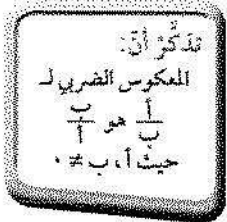 تذكّر أنّ:
المعكوس الضربي لـ
أ/ب هو ب/أ
حيث أ، ب ≠ ٠